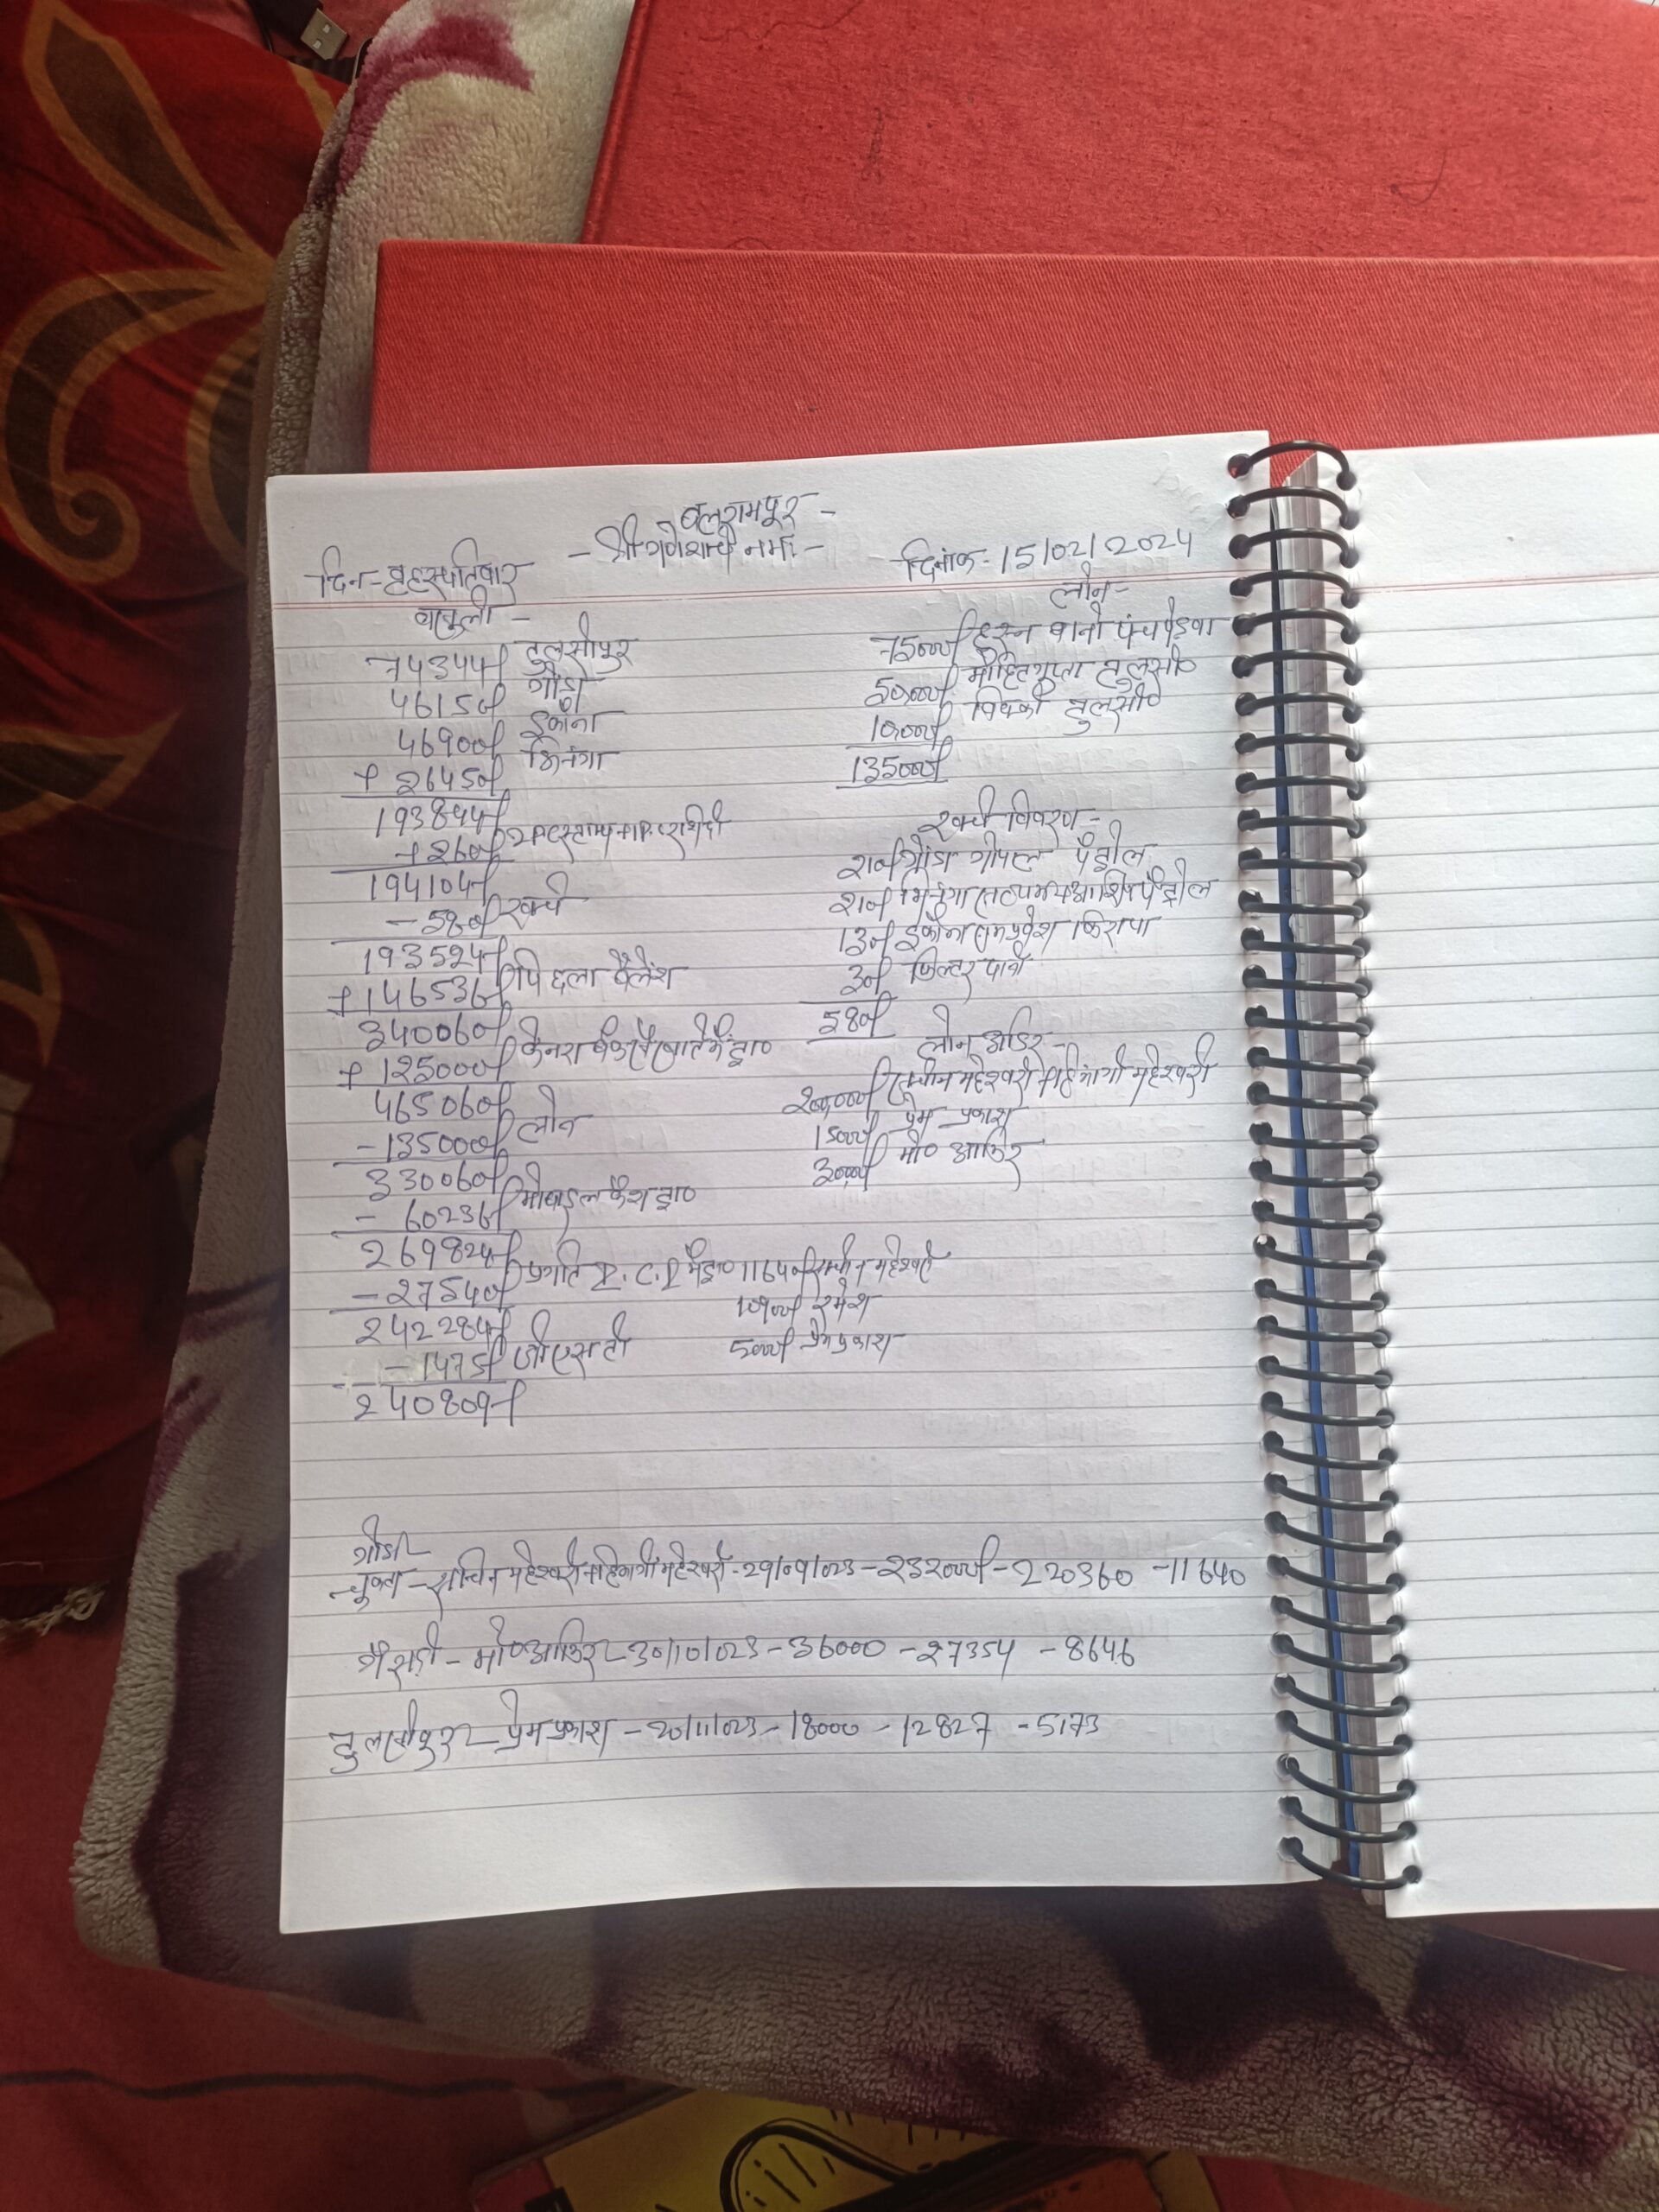 बलरामपुर -
- श्री गणेशाये नमः -
दिन - बृहस्पतिवार
दिनांक - 15/02/2024
वसुली -
74344/ तुलसीपुर
46150/ गोंडा
46900/ इकौना
+ 26450/ भिनगा
193844/
+ 260/
194104/
- 580/ खर्चा
193524/
+ 146536/ पिछला बैलेंश
340060/
+ 125000/ केनरा बैंक
465060/
- 135000/ लोन
330060/
- 60236/ मोबाइल कैश द्वा०
269824/
- 27540/ प्रगति 11640/ सचिन महेश्वरी
10900/ रमेश
5000/ प्रेम प्रकाश
242284/
- 1475/ जीएसटी
240809/
लोन -
75000/ हुस्न बानो पंचपेड़वा
50000/ मोहित गुप्ता तुलसी०
10000/ विक्की तुलसी०
135000/
खर्चा विवरण -
210/ गोंडा गोपाल पैट्रोल
210/ भिनगा पैट्रोल
130/ इकौना किराया
30/ फिल्टर पानी
580/
लोन आडिर -
200000/ सचिन महेश्वरी महेश्वरी
15000/ प्रेम प्रकाश
30000/ मो०
गोंडा
चुक्ता - सचिन महेश्वरी महेश्वरी - 29/09/023 - 232000/ - 220360 - 11640
गैसड़ी - मो० - 30/10/023 - 36000 - 27354 - 8646
तुलसीपुर - प्रेम प्रकाश - 20/11/023 - 18000 - 12827 - 5173